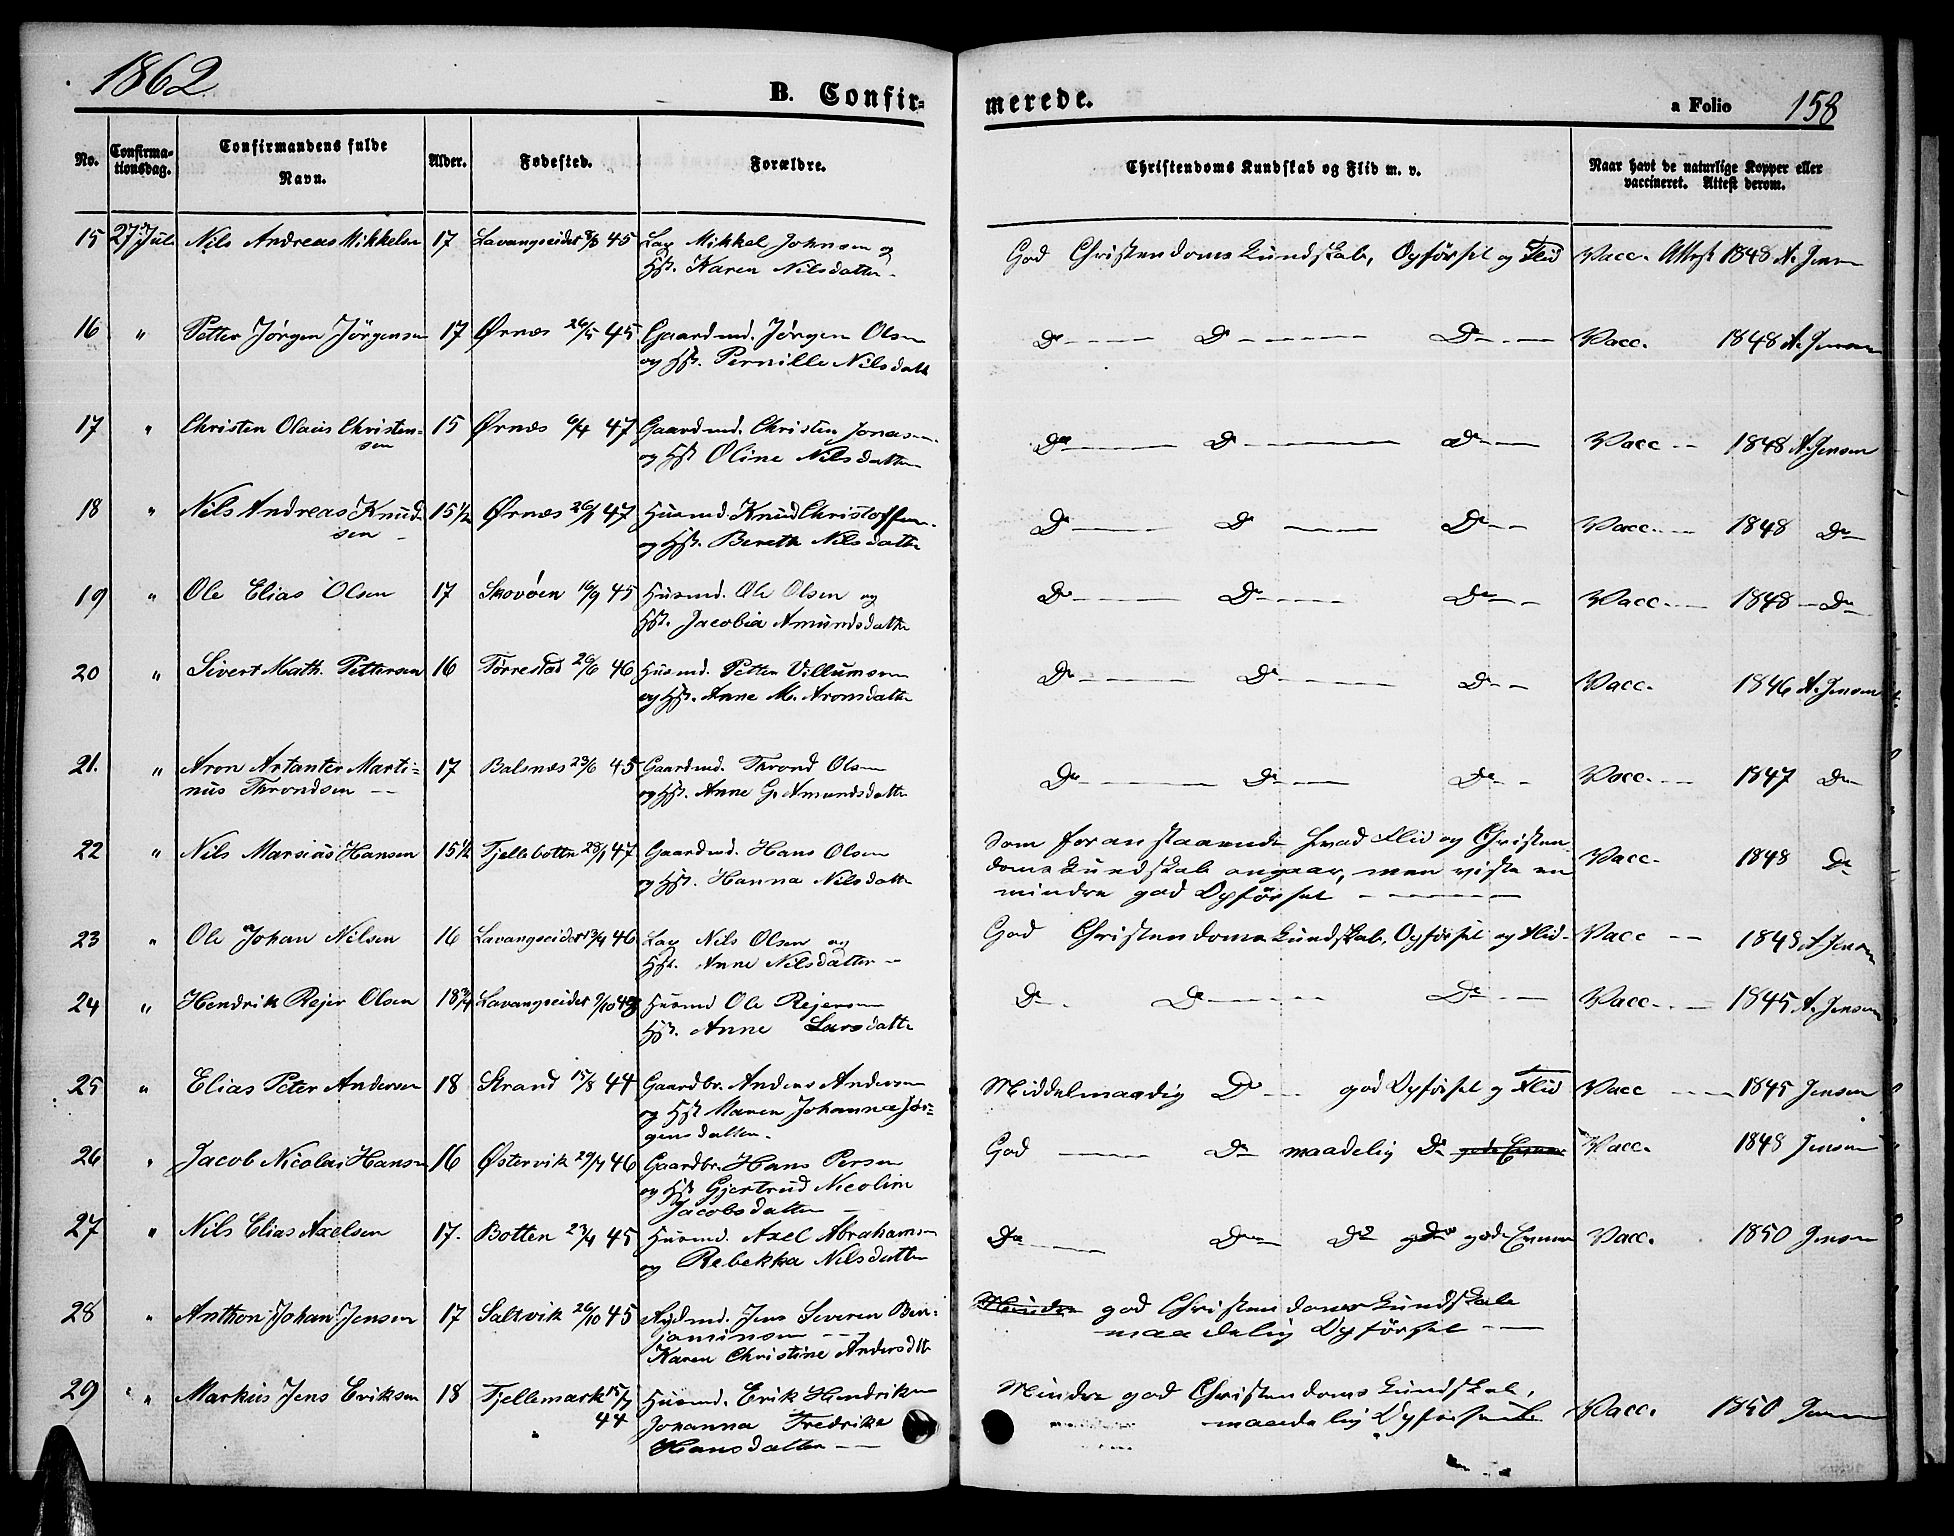 1862.
B. Confir-
merede.
a Folio 158
No. Confirma-tionsdag. Confirmandens fulde Navn. Alder. Fødested. Forældre. Christendoms Kundskab og Flid m. v. Naar havt de naturlige Kopper eller vaccineret. Attest derom.
15 27 Juli Nils Andreas Mikkelsen 17 Lavangseidet 45 Lap Mikkel Johnsen og God Christendoms Kundskab, Opførsel og Flid Vacc. Attest 1848 A. Jensen
Hst. Karen Nilsdatter
16 " Petter Jørgen Jörgensen 17 Ørnæs 26/5 45 Gaardmd. Jørgen Olsen Do Do Do Vacc. 1848 A. Jensen
og Hst. Pernille Nilsdatt
17 " Christen Olaus Christen= 15 Ørnæs 6/4 47 Gaardmd. Christen Jonasen Do Do Do Vacc 1848 A. Jensen
sen og Hst Oline Nilsdatter
18 " Nils Andreas Knud- 15 1/2 Ørnæs 26/1 47 Husmd. Knud Christoffersen Do Do Do Vacc. 1848 Do
sen og Hst. Bereth Nilsdatter
19 " Ole Elias Olsen 17 Skovøen 16/9 45 Husmd. Ole Olsen og Do Do Do Vacc. 1848 Do
Hst. Jacobia Amundsdatter
20 " Sivert Math. Pettersen 16 Tørrestad 26/6 46 Husmd. Petter Villumsen Do Do Do Vacc. 1846 A. Jensen
og Hst. Anne M. Aronsdatter
21. " Aron Artanter Marti= 17 Balsnæs 23/6 45 Gaardmd. Thrond Olsen Do Do Do Vacc. 1847 Do
nus Throndsen og Hst. Anne G. Amundsdatter
22 " Nils Marsiùs Hansen 15 1/2 Fjellebotten 28/1 47 Gaardmd. Hans Olsen Som foranstaaende hvad Flid og Christen Vacc. 1848 Do
og Hst. Hanna Nilsdatter doms Kundskab angaar, men viste en
mindre god Opførsel
23 " Ole Johan Nilsen 16 Lavangseidet 13/4 46 Lap Nils Olsen og God Christendoms Kundskab, Opførsel og Flid Vacc 1848 A Jensen
Hst. Anne Nilsdatter
24 " Hendrik Rejer Olsen 18 3/4 Lavangseidet 9/10 43 Husmd Ole Rejersen Do Do Do Vacc. 1845 A. Jensen
Hst. Anne Larsdatter
25 " Elias Peter Andersen 18 Strand 15/8 44 Gaardbr. Anders Andersen Middelmaadig Do god Opførsel og Flid Vacc 1845 Jensen
og Hst Maren Johanna Jør-
gensdatter.
26 " Jacob Nicolai Hansen 16 Østervik 29/7 46 Gaardbr. Hans Persen God Do maadelig Do gode Evner Vacc. 1848 Jensen
og Hst Gjertrud Nicoline
Jacobsdatter
27 " Nils Elias Axelsen 17. Botten 23/4 45 Husmd. Axel Abrahams Do Do Do gode Evner Vacc. 1850 Jensen
og Rebekka Nilsdatter
28 " Anthon Johan Jensen 17 Saltvik 26/10 45 Jens Severen Ben- Mindre god Christendoms Kundskab
jaminsen maadelig Opførsel
Karen Christine Andersdtr
29 " Markus Jens Eriksen 18 Fjellemark 15/7 44 Husmd. Erik Hendriksen Mindre god Christendoms Kundskab, Vacc. 1850 Jensen
Johanna Fredrika maadelig Opførsel
Hansdatter